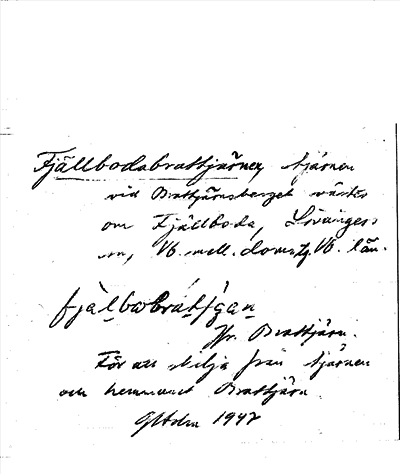 Fjällbodabrattjärnen, tjärnen
vid Brattjärnsberget väster
om Fjällboda, Lövångers
sn, Vb. mell. doms., Vb. län.
fjälbωbrátʃǥan
Jfr. Brattjärn.
För att skilja från tjärnen
och hemmanet Brattjärn.
1947